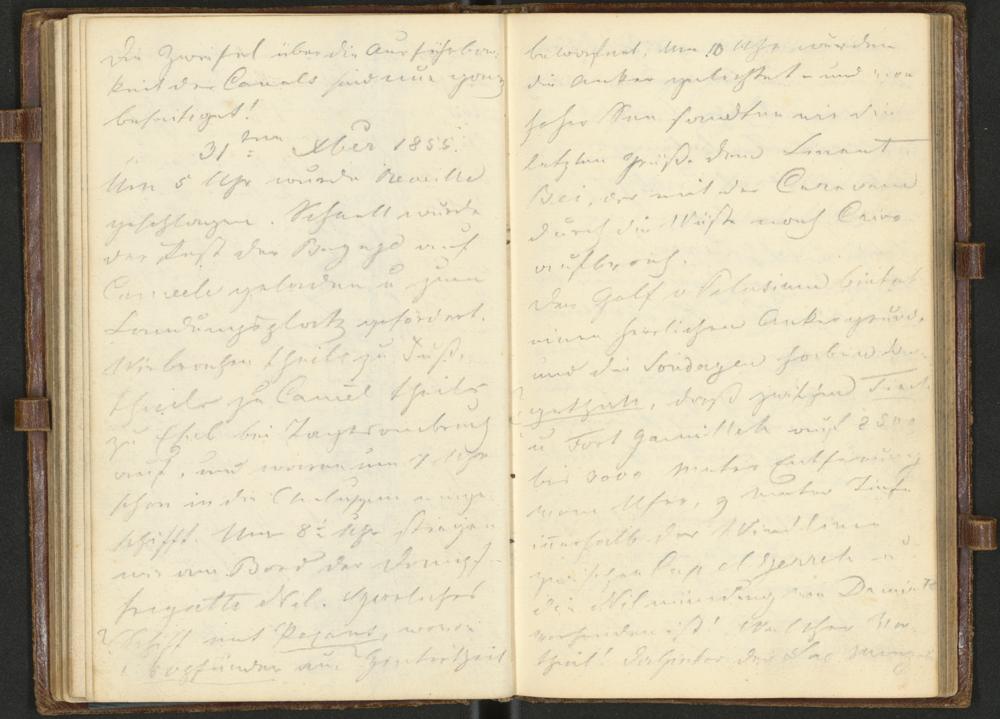 Die Zweifel über die Ausführbar-
keit des Canals sind nun ganz
beseitiget!
31ten Xber 1855.
Um 5 Uhr wurde Reveille
geschlagen. Schnell wurde
der Rest der Bagage auf
Cameele geladen u zum
Landungsplatz gefördert.
Wir brachen theils zu Fuß,
theils zu Cameel theils
zu Esel bei Tagesanbruch
auf, und waren um 7 Uhr
schon in die Chaluppen einge-
schifft. Um 8 Uhr stiegen
wir am Bord der Dampf-
fregatte Nil. Herrliches
Schiff mit
aus Hintertheil
bewafnet. Um 10 Uhr wurden
die Anker gelichtet und von
hoher See sandten wir die
letzten Grüße dem Linant
Bei, der mit der Caravane
durch die Wüste nach Cairo
aufbrach.
Der Golf v Pelusium bietet
einen herrlichen Ankergrund,
und die Sondagen haben
, daß zwischen
u Fort Gamilleh auf
bis 3000 Meter Entfernung
vom Ufer, 9 Meter Tiefe
innerhalb der
zwischen Cap el
die Nilmündung von Damiette
vorhanden ist! Welcher Vor-
theil! Dahinter der See